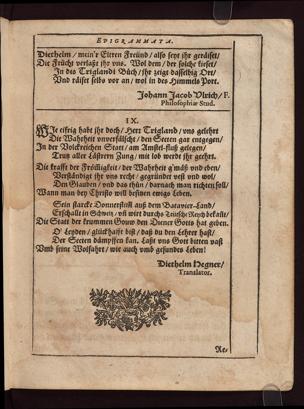 EPIGRAMMATA.
Diethelm / mein'r Eltren Freünd / also seyt ihr geräiset /
Die Früchs verlaßt ihr uns. Wol dem / der solche fürset /
In das Triglandi Büch / Ihr zeigt dasselbig Ort /
Und räiset selbs vor an / wol in des Himmels Port.
Johann Jacob Ulrich / F.
Philosophiæ Stud.
IX.
WIe eifrig habt ihr doch / Herr Trigland / uns gelehrt
Die Wahrheit unverfälscht / den Secten gar entgegen /
In der Volckreichen Statt / am Amstel-fluß gelegen /
Trutz aller Lästrern Zung / mit lob werdt ihr geehrt.
Die krafft der Fridligkeit / der Wahrheit g'mäß und eben /
Verständiget ihr uns recht / gegründet vest und wol /
Den Glauben / und das thün / darnach man richten soll /
Wann man bey Christo will besitzen ewigs Leben.
Sein starcke Donnerstimm auß dem Batavier-Land /
Erschallt in Schweitz / uñ wirt durchs Teütsche Reych bekañt /
Die Statt der krummen Gouw den Diener Gotts hat geben.
O Leyden / glückhafft bist / daß du den Lehrer hast /
Der Secten dämpffen kan. Laßt uns Gott bitten vast
Umb seine Wolfahrt / wie auch umb gesundes Leben!
Diethelm Hegner /
Translator.
Re-